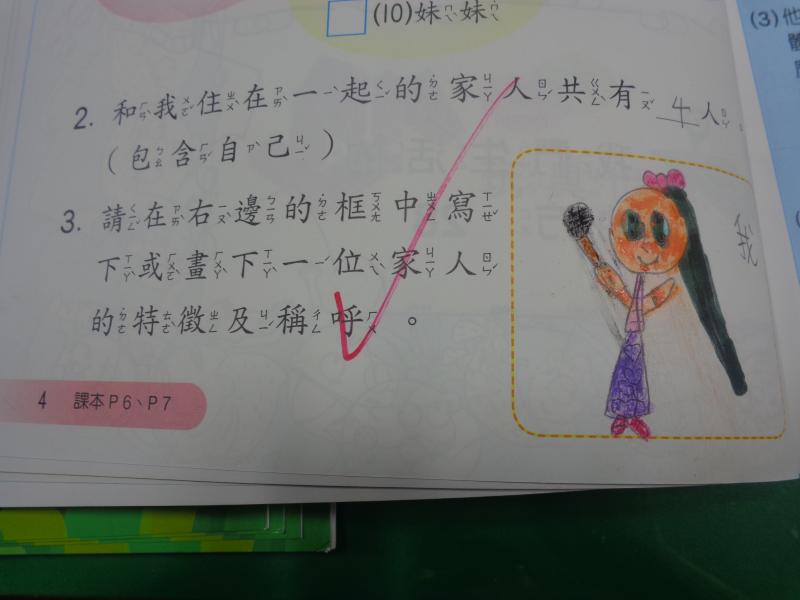 (10)妹ㄇㄟˋ妹ㄇㄟ˙
2. 和ㄏㄢˋ我ㄨㄛˇ住ㄓㄨˋ在ㄗㄞˋ一ㄧˋ起ㄑㄧˇ的ㄉㄜ˙家ㄐㄧㄚ人ㄖㄣˊ共ㄍㄨㄥˋ有ㄧㄡˇ 4 人ㄖㄣˊ。
(包ㄅㄠ含ㄏㄢˊ自ㄗˋ己ㄐㄧˇ)
3. 請ㄑㄧㄥˇ在ㄗㄞˋ右ㄧㄡˋ邊ㄅㄧㄢ的ㄉㄜ˙框ㄎㄨㄤ中ㄓㄨㄥ寫ㄒㄧㄝˇ
下ㄒㄧㄚˋ或ㄏㄨㄛˋ畫ㄏㄨㄚˋ下ㄒㄧㄚˋ一ㄧˊ位ㄨㄟˋ家ㄐㄧㄚ人ㄖㄣˊ
的ㄉㄜ˙特ㄊㄜˋ徵ㄓㄥ及ㄐㄧˊ稱ㄔㄥ呼ㄏㄨ。
我
4 課本P6、P7
(3)他